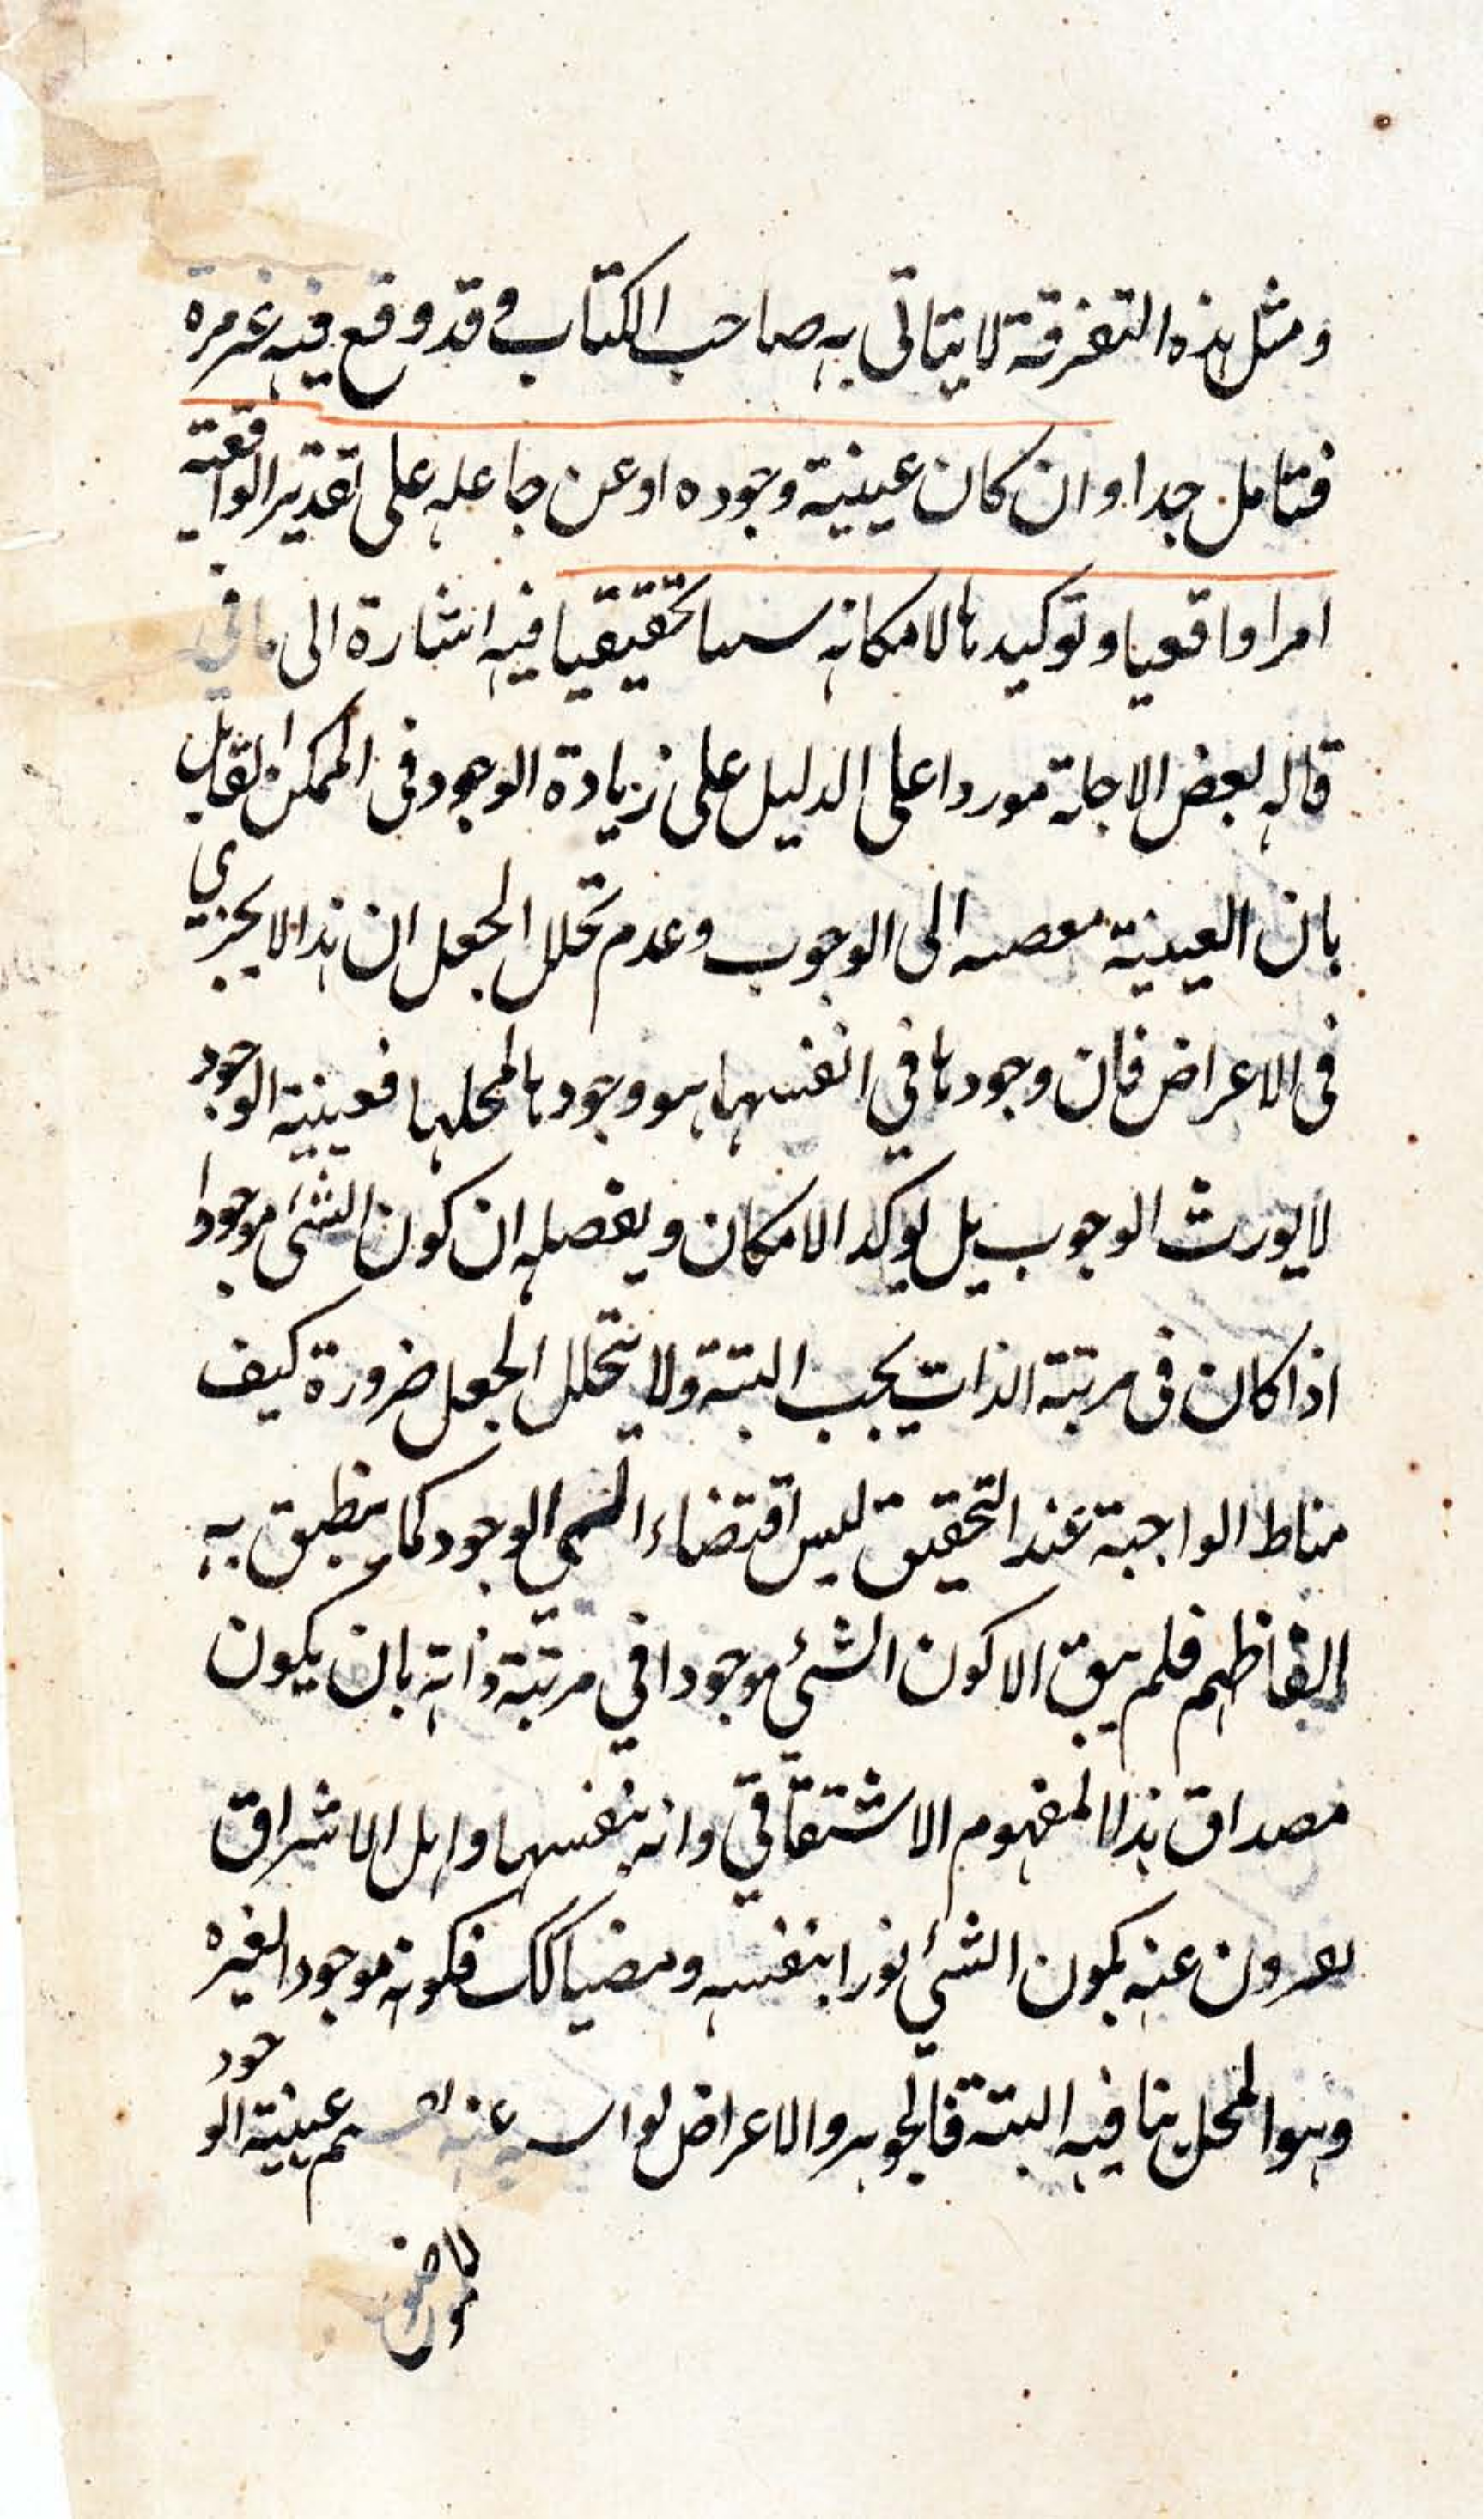 ومثل هذه التفرقة لا يتاتى به صاحب الكتاب وقد وقع فيه غير مرة
فتامل جدا وان كان عينية وجوده او عن جاعله على تقدير الواقعية
امرا واقعيا وتوكيدها لامكانه تحقيقيا فيه اشارة الى ما في
قاله بعض الاجلة موردا على الدليل على زيادة الوجود في الممكن القائل
بان العينية الى الوجوب وعدم تخلل الجعل ان هذا لا يجري
في الاعراض فان وجودها في انفسها هو وجودها لمحلها فعينية الوجود
لا يورث الوجوب بل يوكد الامكان ويفصله ان كون الشئ موجودا
اذا كان في مرتبة الذات يجب البتة ولا يتخلل الجعل ضرورة كيف
مناط الواجبة عند التحقيق ليس اقتضاء الوجود كما ينطبق به
الفاظهم فلم يبق الا كون الشئ موجودا في مرتبة ذاته بان يكون
مصداق هذا المفهوم الاشتقاقي ذاته بنفسها واهل الاشراق
يعبرون عنه بكون الشئ نورا بنفسه ومضيا كك فكونه موجودا لغيره
وهو المحل ينافيه البتة فالجوهر والاعراض عينية الوجود